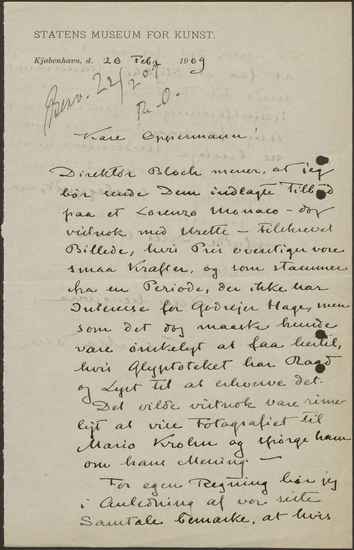 STATENS MUSEUM FOR KUNST.
Kjøbenhavn, d. 20 Febr 1909
Besv. 22/2 09
Th. O.
Kære Oppermann!
Direktør Bloch mener, at jeg
bør sende Dem indlagte Tilbud
paa et Lorenzo Monaco – dog
vistnok med Urette – tilskrevet
Billede, hvis Pris overstiger vore
smaa Kræfter, og som stammer
fra en Periode, der ikke har
Interesse for Godsejer Hage, men
som det dog maaske kunde
være ønskeligt at faa hertil,
hvis Glyptoteket har Raad
og Lyst til at erhverve det.
Det vilde vistnok være rime-
ligt at vise Fotografiet til
Mario Krohn og spørge ham
om hans Mening. –
For egen Regning bør jeg
i Anledning af vor sidste
Samtale bemærke, at hvis